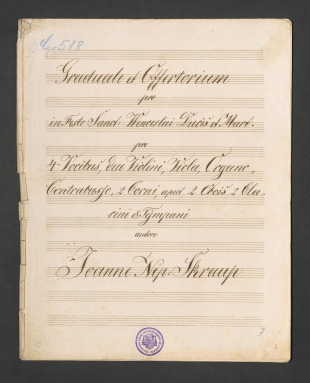 Graduale et Offertorium
pro
in Festo Sanct: Wenceslai Ducis et Mart.
pro
4 Vocibus, due Violini, Viola, Organo,
Contrabasso, 2 Corni, 2 Obois 2 Cla-
rini & Tympani
autore
Joanne Nep: Skraup